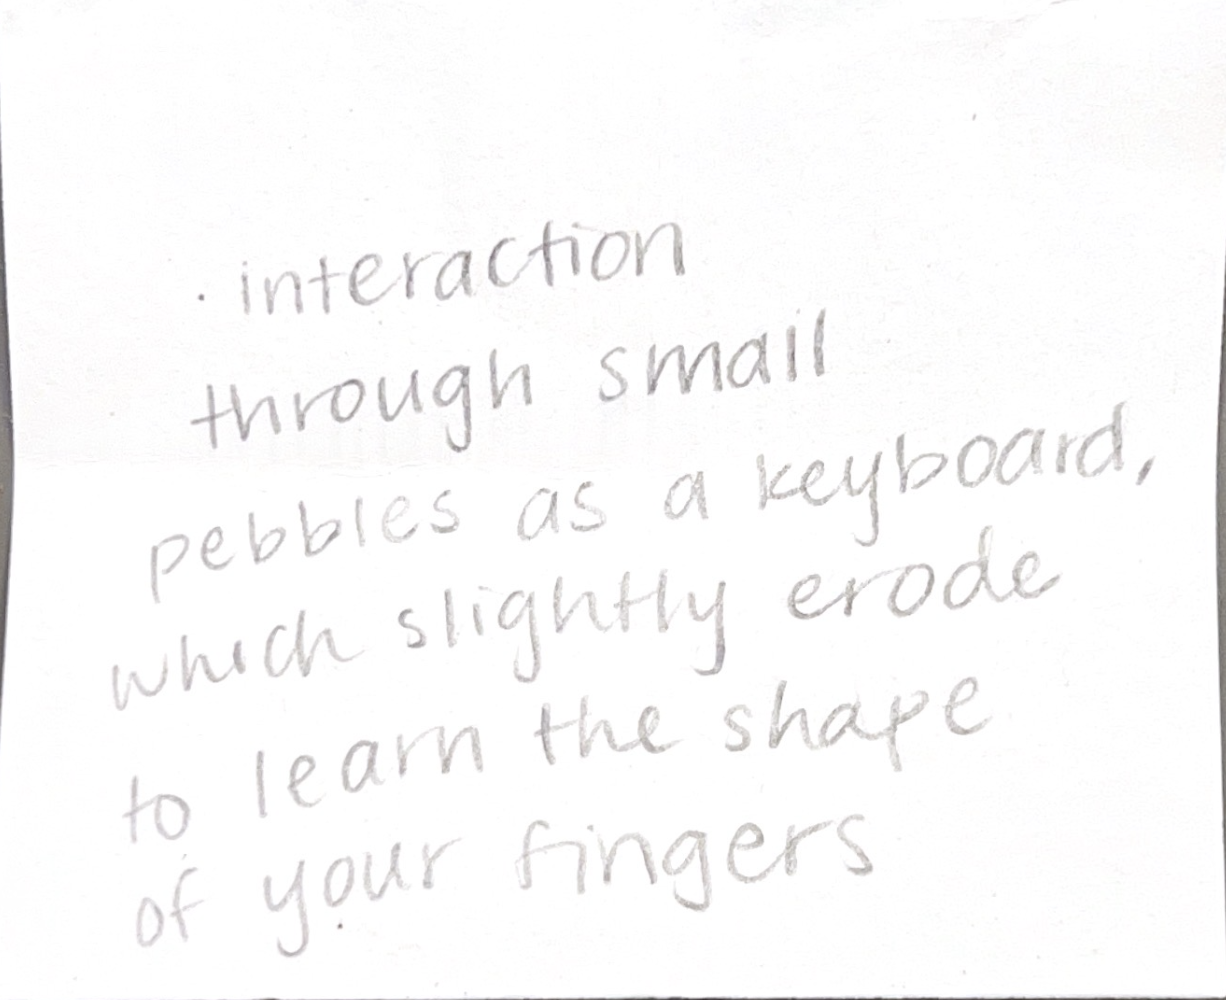 · interaction
through small
pebbles as a keyboard,
which slightly erode
to learn the shape
of your fingers